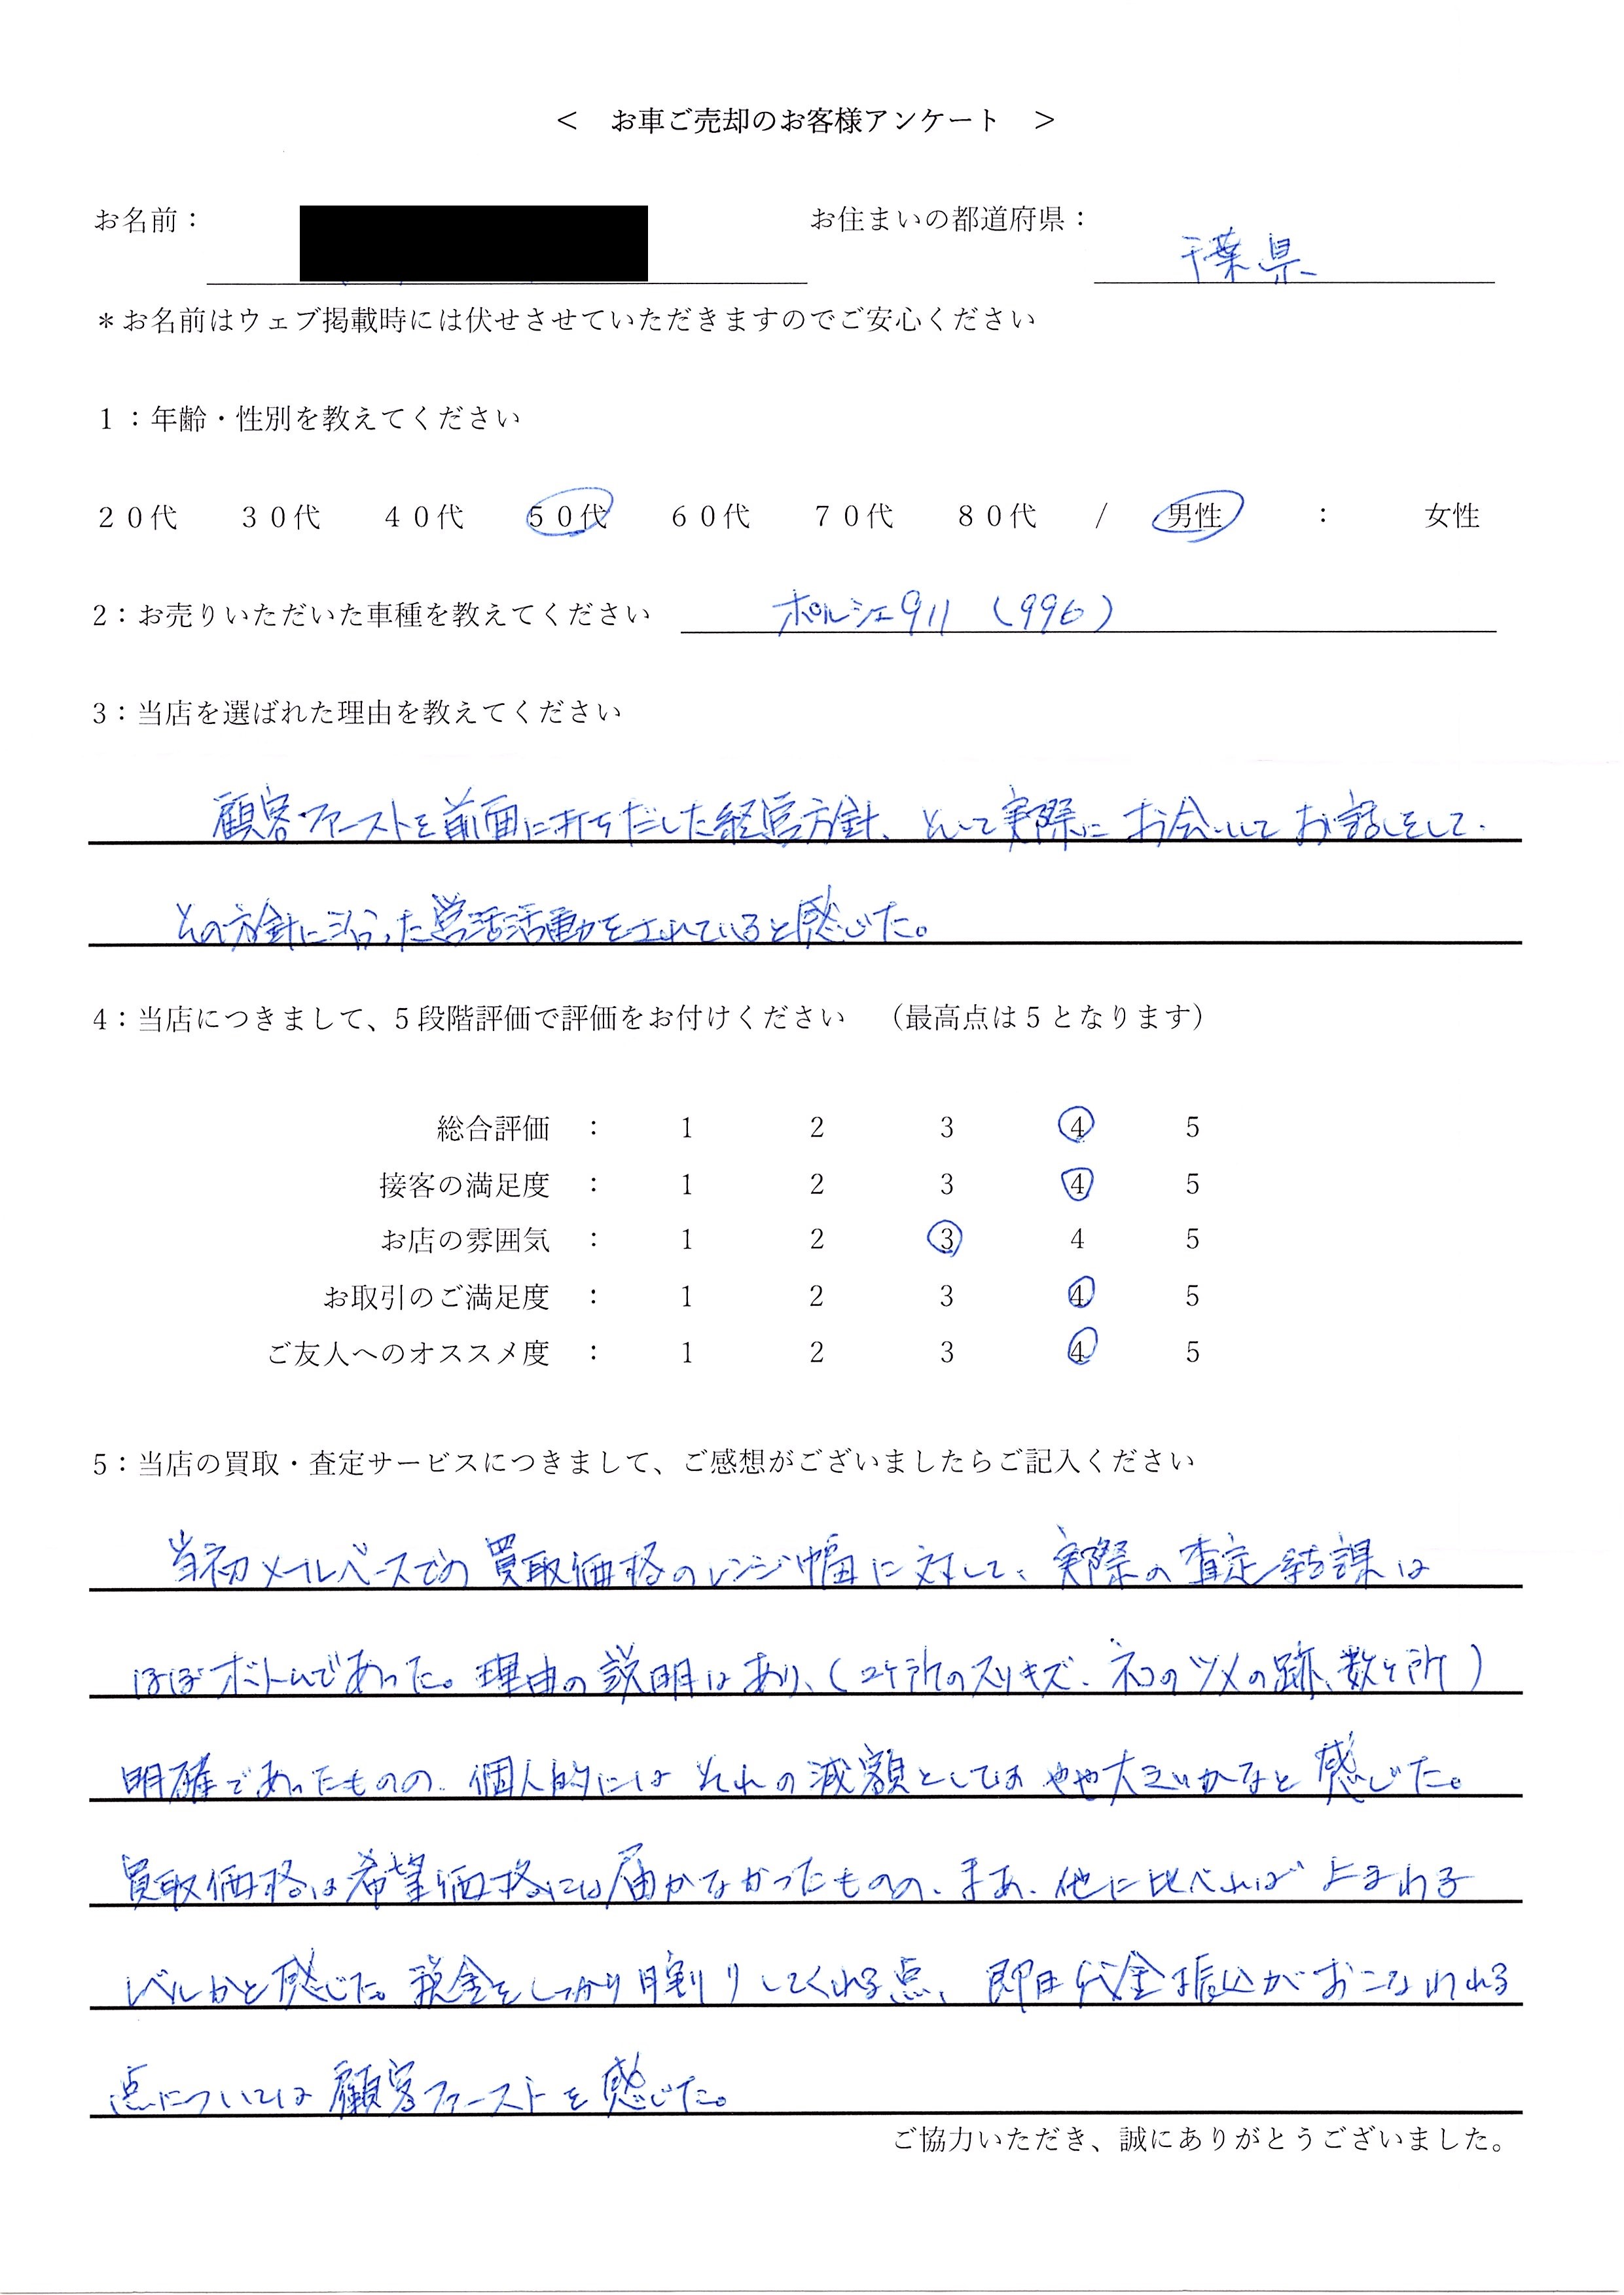 ＜　お車ご売却のお客様アンケート　＞
お名前：　お住まいの都道府県：　千葉県
＊お名前はウェブ掲載時には伏せさせていただきますのでご安心ください
1：年齢・性別を教えてください
２０代　３０代　４０代　５０代　６０代　７０代　８０代　/　男性　：　女性
2：お売りいただいた車種を教えてください　ポルシェ911（996）
3：当店を選ばれた理由を教えてください
顧客ファーストを前面に打ちだした経営方針、そして実際にお会いしてお話しをして、
その方針に沿った営活活動をされていると感じた。
4：当店につきまして、5段階評価で評価をお付けください　（最高点は5となります）
総合評価　：　1　2　3　4　5
接客の満足度　：　1　2　3　4　5
お店の雰囲気　：　1　2　3　4　5
お取引のご満足度　：　1　2　3　4　5
ご友人へのオススメ度　：　1　2　3　4　5
5：当店の買取・査定サービスにつきまして、ご感想がございましたらご記入ください
当初メールベースでの買取価格のレンジ幅に対して、実際の査定結課は
ほぼボトムであった。理由の説明はあり、（2ケ所のスリキズ、ネコのツメの跡、数ケ所）
明確であったものの、個人的にはそれの減額としてはやや大きいかなと感じた。
買取価格は希望価格には届かなかったものの、まあ、他に比べればよまれる
レベルかと感じた。税金をしっかり月割りしてくれる点、即日代金振込がおこなわれる
点については顧客ファーストを感じた。
ご協力いただき、誠にありがとうございました。